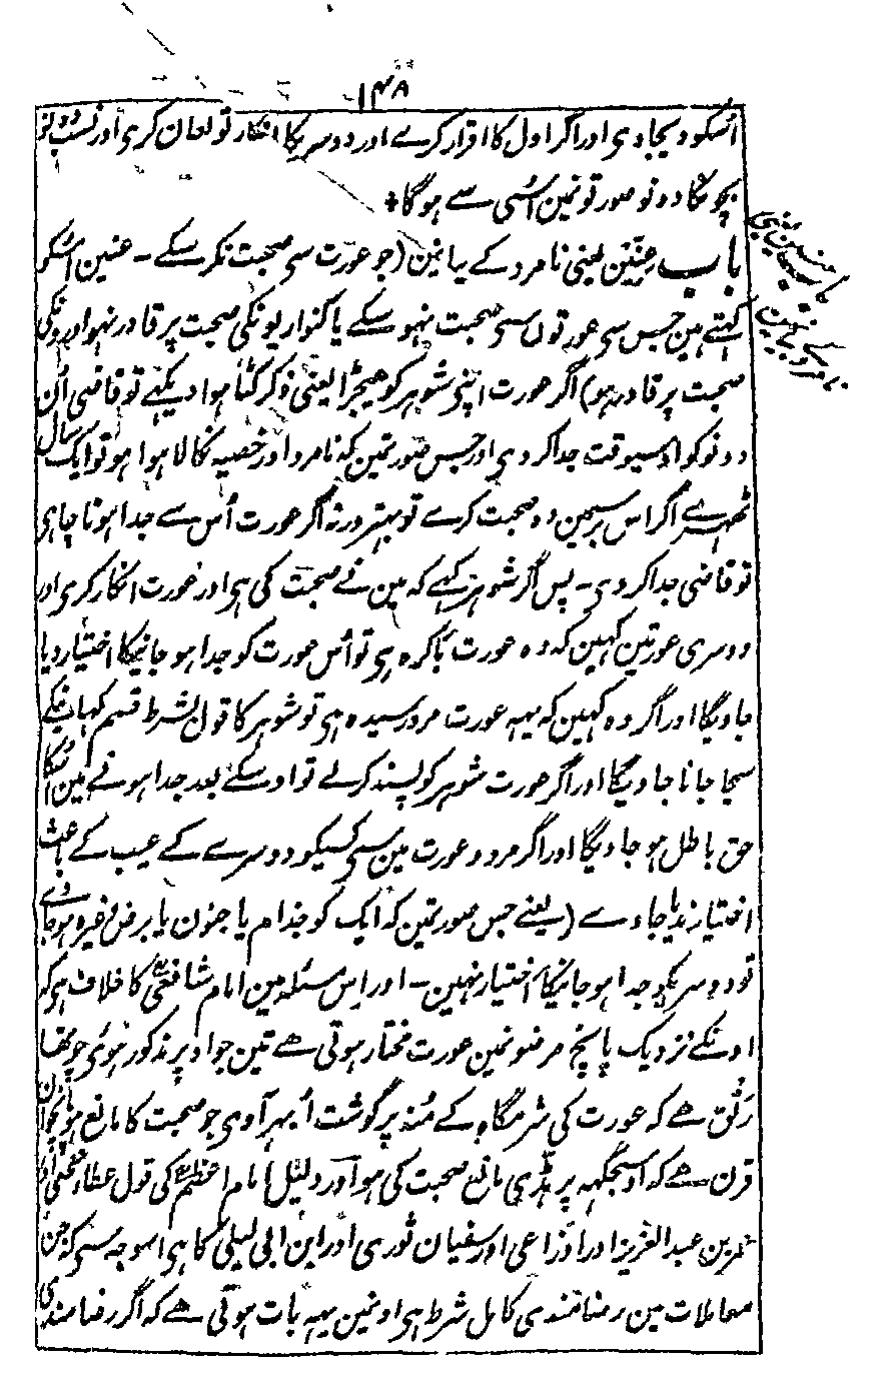 ۱۴۸
اُسکو دیجاوی اور اگر اول کا اقرار کرے اور دوسریکا انکار تو لعان کری اور نسب دونو
بچونکا دونو صورتونمین اُسی سے ہوگا+
باب عِنّین یعنی نامرد کے بیانمین (جو عورت سی صحبت نکر سکے - عنین اُسکو
کہتے ہین جس سی عورتون سی صحبت نہو سکے یا کنواریونکی صحبت پر قادر نہو اور
صحبت پر قادر ہو) اگر عورت اپنی شوہر کو ہیجڑا یعنی ذکر کٹا ہوا دیکہے تو قاضی اُن
دونوکو اوسیوقت جدا کردی اور جس صورتمین کہ نامرد اور خصیہ نکالا ہوا ہو تو ایک سال
ٹھہرے اگر اس برسمین وہ صحبت کرے تو بہتر ورنہ اگر عورت اُس سے جدا ہونا چاہی
تو قاضی جدا کردی - پس اگر شوہر کہے کہ مین نے صحبت کی ہی اور عورت انکار کری اور
دوسری عورتین کہین کہ وہ عورت باکرہ ہی تو اُس عورت کو جدا ہو جانیکا اختیار دیا
جاویگا اور اگر وہ کہین کہ یہہ عورت مرد رسیدہ ہی تو شوہر کا قول بشرط قسم کہانیکے
سچا جانا جاویگا اور اگر عورت شوہر کو پسند کرلے تو اوسکے بعد جدا ہونے مین اُسکا
حق باطل ہو جاویگا اور اگر مرد و عورت مین سی کسیکو دوسرے کے عیب کے باعث
اختیار ندیا جاوے (یعنے جس صورتمین کہ ایک کو جذام یا جنون یا برص وغیرہ ہو جاوے
تو دوسریکو جدا ہو جانیکا اختیار نہین - اور اس مسئلہ مین امام شافعیؒ کا خلاف ہی کہ
اونکے نزدیک پانچ مرضونمین عورت مختار ہوتی ہے تین جو اوپر مذکور ہوئی چوتھا
رَتُق ہے کہ عورت کی شرمگاہ کے مُنہ پر گوشت اُبہر آوی جو صحبت کا مانع ہو پانچوان
قرن ہے کہ اوسجگہہ پر ہڈی مانع صحبت کی ہو اور دلیل امام اعظمؒ کی قول عطاء نخعی اور
عمر بن عبدالعزیز اور اوزاعی اور سفیان ثوری اور ابن ابی لیلی کا ہی اسوجہ سی کہ جن
معاملات مین رضامندی کامل شرط ہی اونمین یہہ بات ہوتی ہے کہ اگر رضامندی
باب عنین یعنی
نامرد کے بیانمین